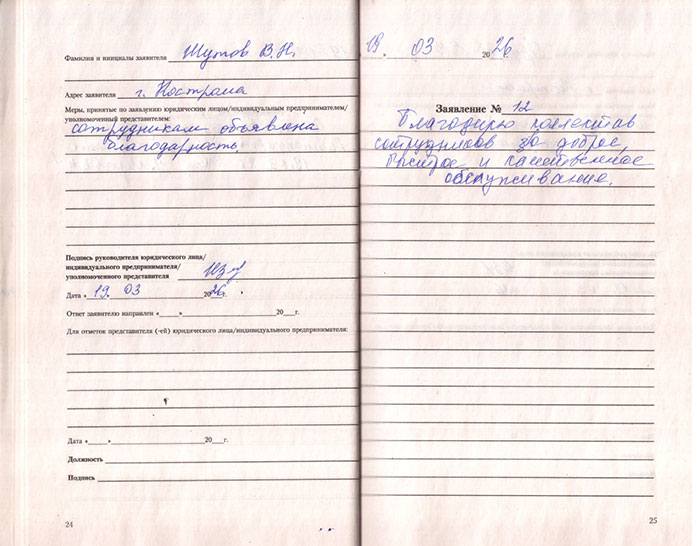 Фамилия и инициалы заявителя Шутов В.Н.
Адрес заявителя г. Кострома
Меры, принятые по заявлению юридическим лицом/индивидуальным предпринимателем/
уполномоченный представителем:
сотрудникам объявлена
благодарность
Подпись руководителя юридического лица/
индивидуального предпринимателя/
уполномоченного представителя
Дата «19» 03 2026г.
Ответ заявителю направлен «___»____________20___г.
Для отметок представителя (-ей) юридического лица/индивидуального предпринимателя:
Дата «___»____________20___г.
Должность
Подпись
24
19 03 2026г.
Заявление № 12
Благодарю коллектив
сотрудников за доброе,
быстрое и качественное
обслуживание.
25